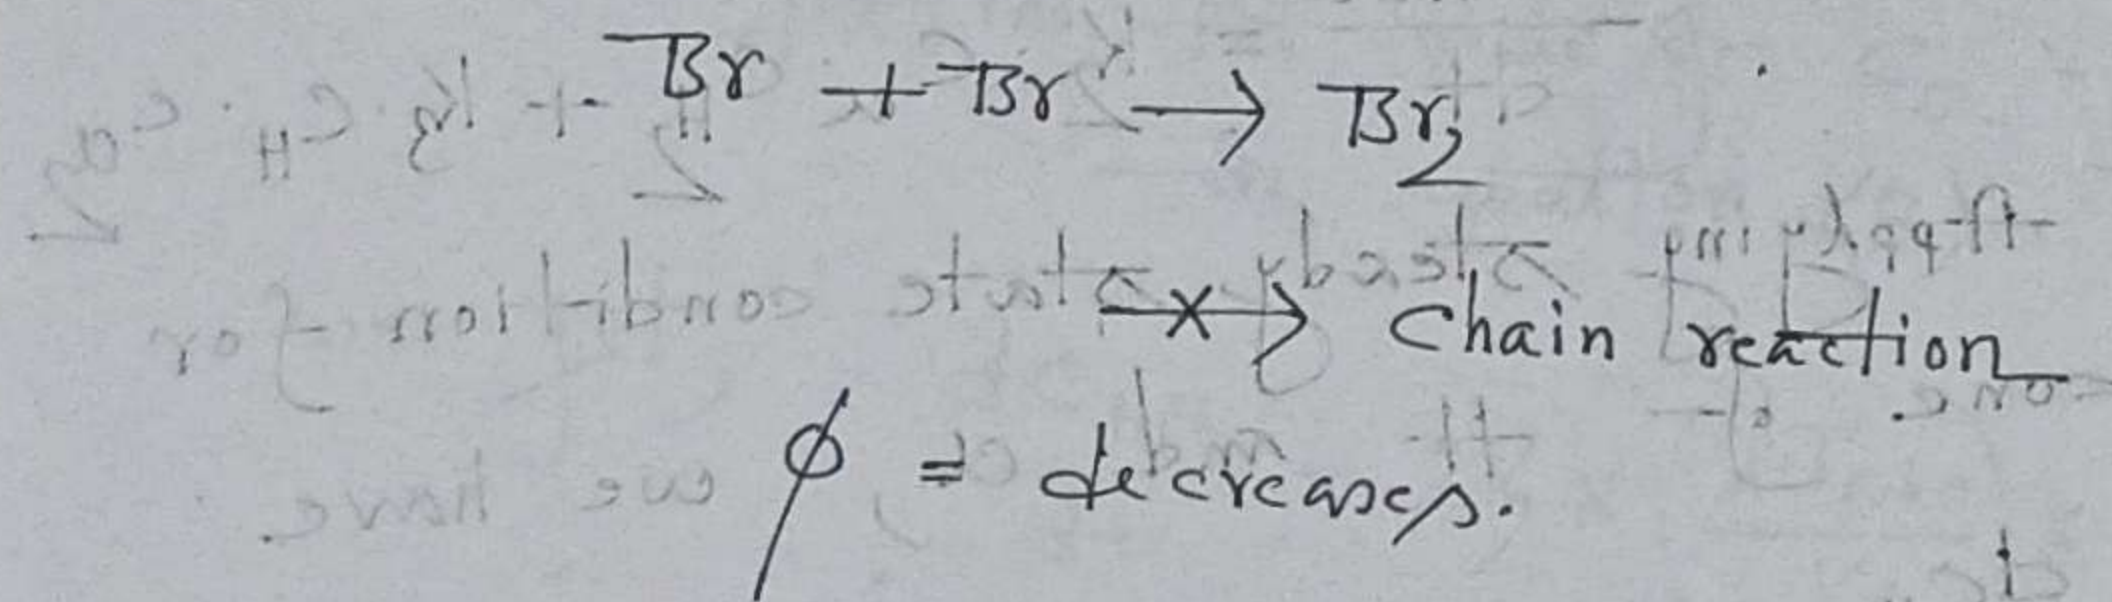 Br + Br → Br₂
—x→ Chain reaction
ϕ = decreases.